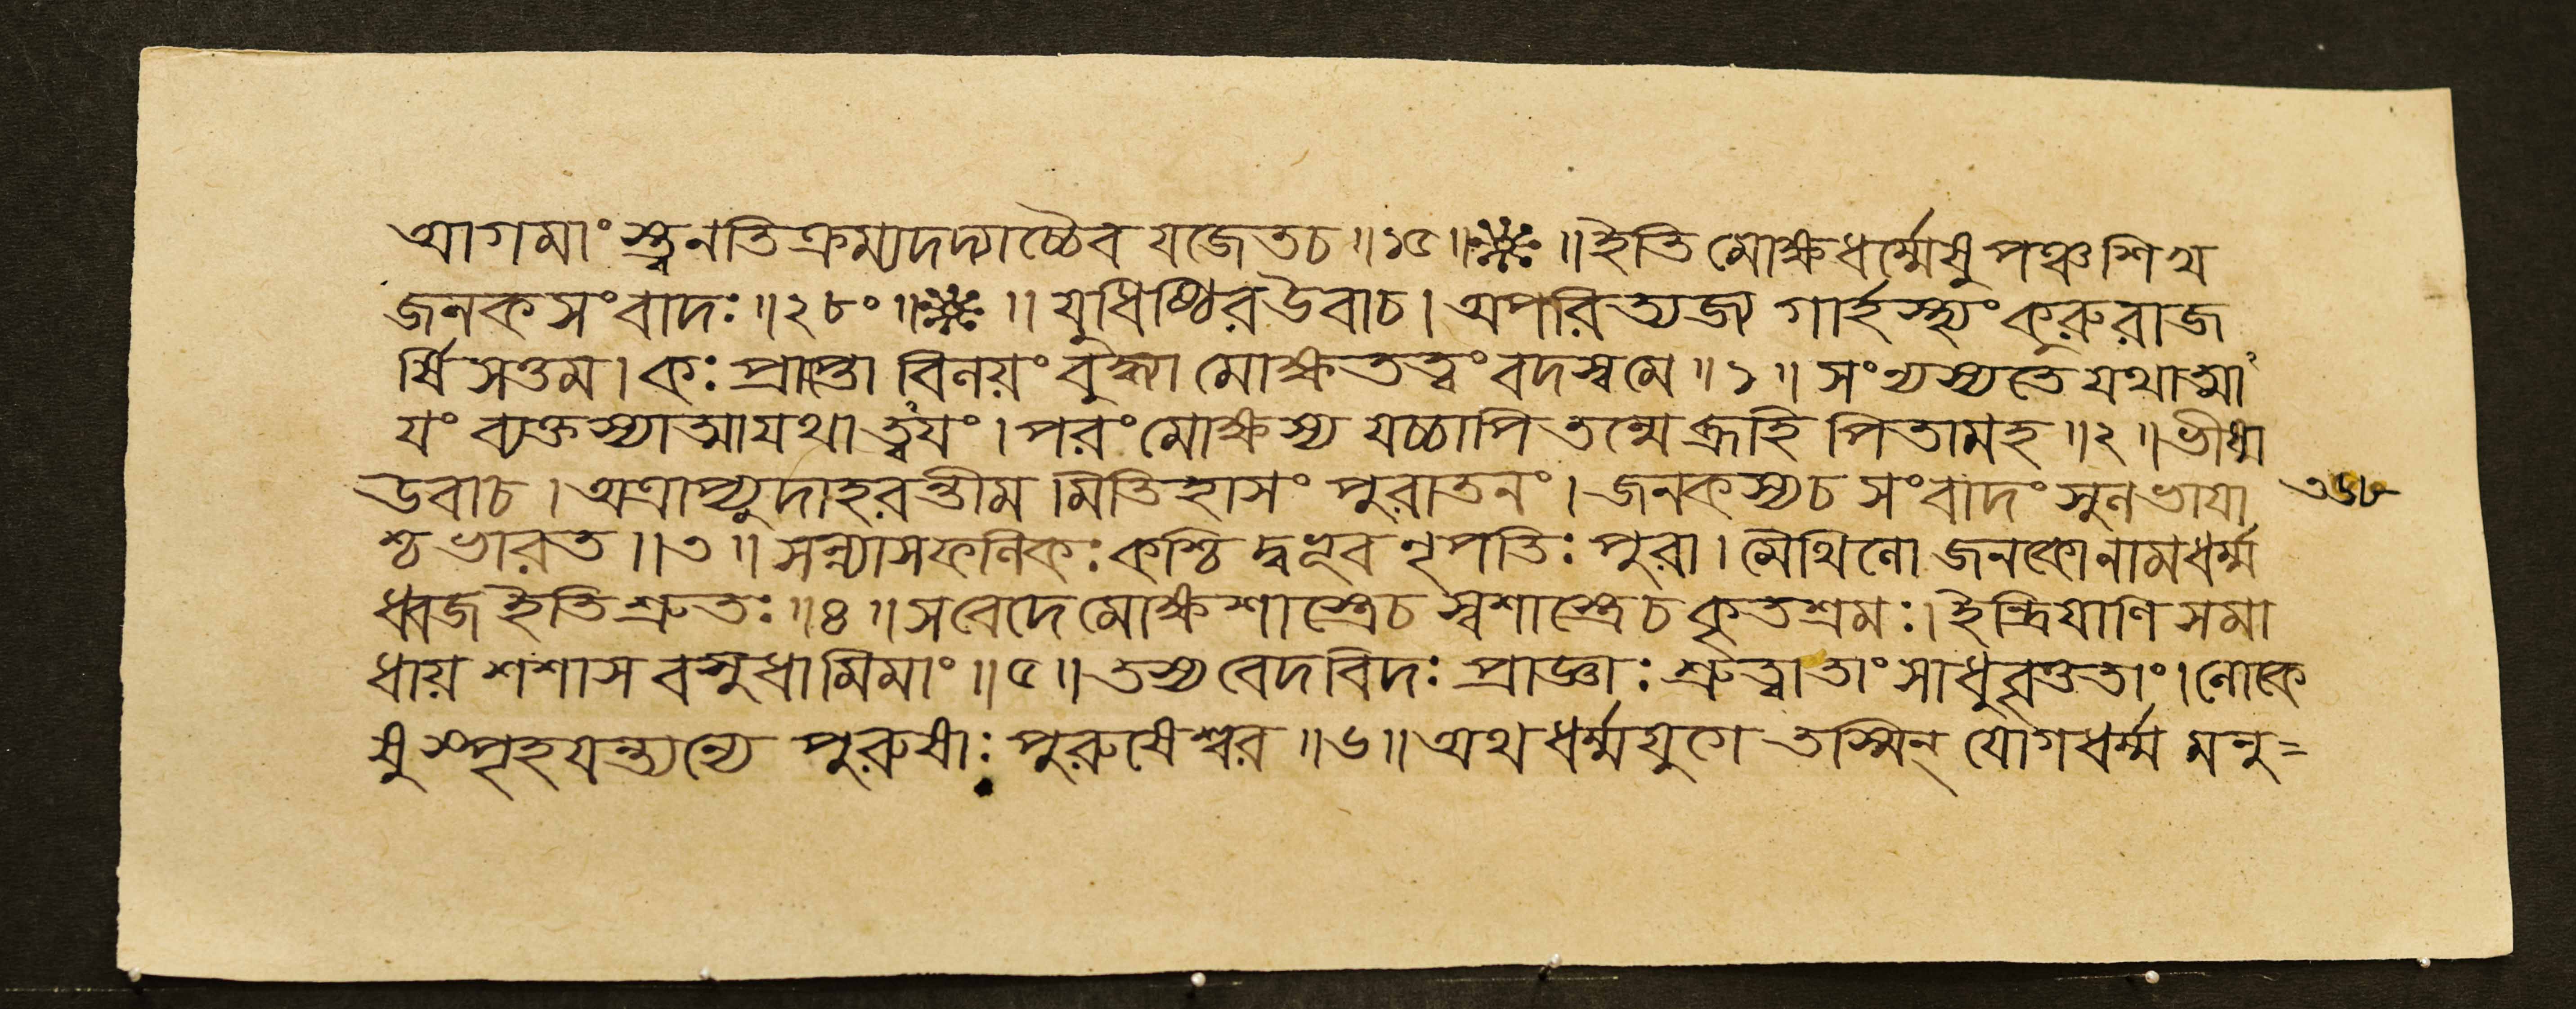 আগমাংস্ত্বনতিক্রম্যদদ্যাচ্চৈব যজেতচ॥১৫॥ ॥ইতি মোক্ষধর্ম্মেষু পঞ্চশিখ
জনকসংবাদঃ॥২৮০॥ ॥যুধিষ্ঠিরউবাচ। অপরিত্যজ্য গার্হস্থ্যং কুরুরাজ
র্ষিসত্তম। কঃ প্রাপ্তো বিনয়ং বুদ্ধ্যা মোক্ষতত্ত্বং বদস্বমে॥১॥ সংন্যস্যতেযথাত্মা
যং ব্যক্তস্যাত্মাযথাত্বয়ং। পরংমোক্ষস্য যচ্চাপি তন্মেব্রূহি পিতামহ॥২॥ ভীষ্ম
উবাচ। অত্রাপ্যুদাহরন্তীম মিতিহাসং পুরাতনং। জনকস্যচ সংবাদং সুলভাযা ৩৬৮
শ্চ ভারত॥৩॥ সন্ন্যাসফলিকঃ কশ্চি দ্বভূব নৃপতিঃ পুরা। মৈথিলো জনকোনামধর্ম্ম
ধ্বজ ইতিশ্রুতঃ॥৪॥ সবেদে মোক্ষশাস্ত্রেচ স্বশাস্ত্রেচ কৃতশ্রমঃ। ইন্দ্রিযাণি সমা
ধায় শশাস বসুধামিমাং॥৫॥ তস্য বেদবিদঃ প্রাজ্ঞাঃ শ্রুত্বাতাং সাধুবৃত্ততাং। লোকে
ষু স্পৃহযন্ত্যন্যে পুরুষাঃ পুরুষেশ্বর॥৬॥ অথ ধর্ম্মযুগে তস্মিন্ যোগধর্ম্ম মনু=